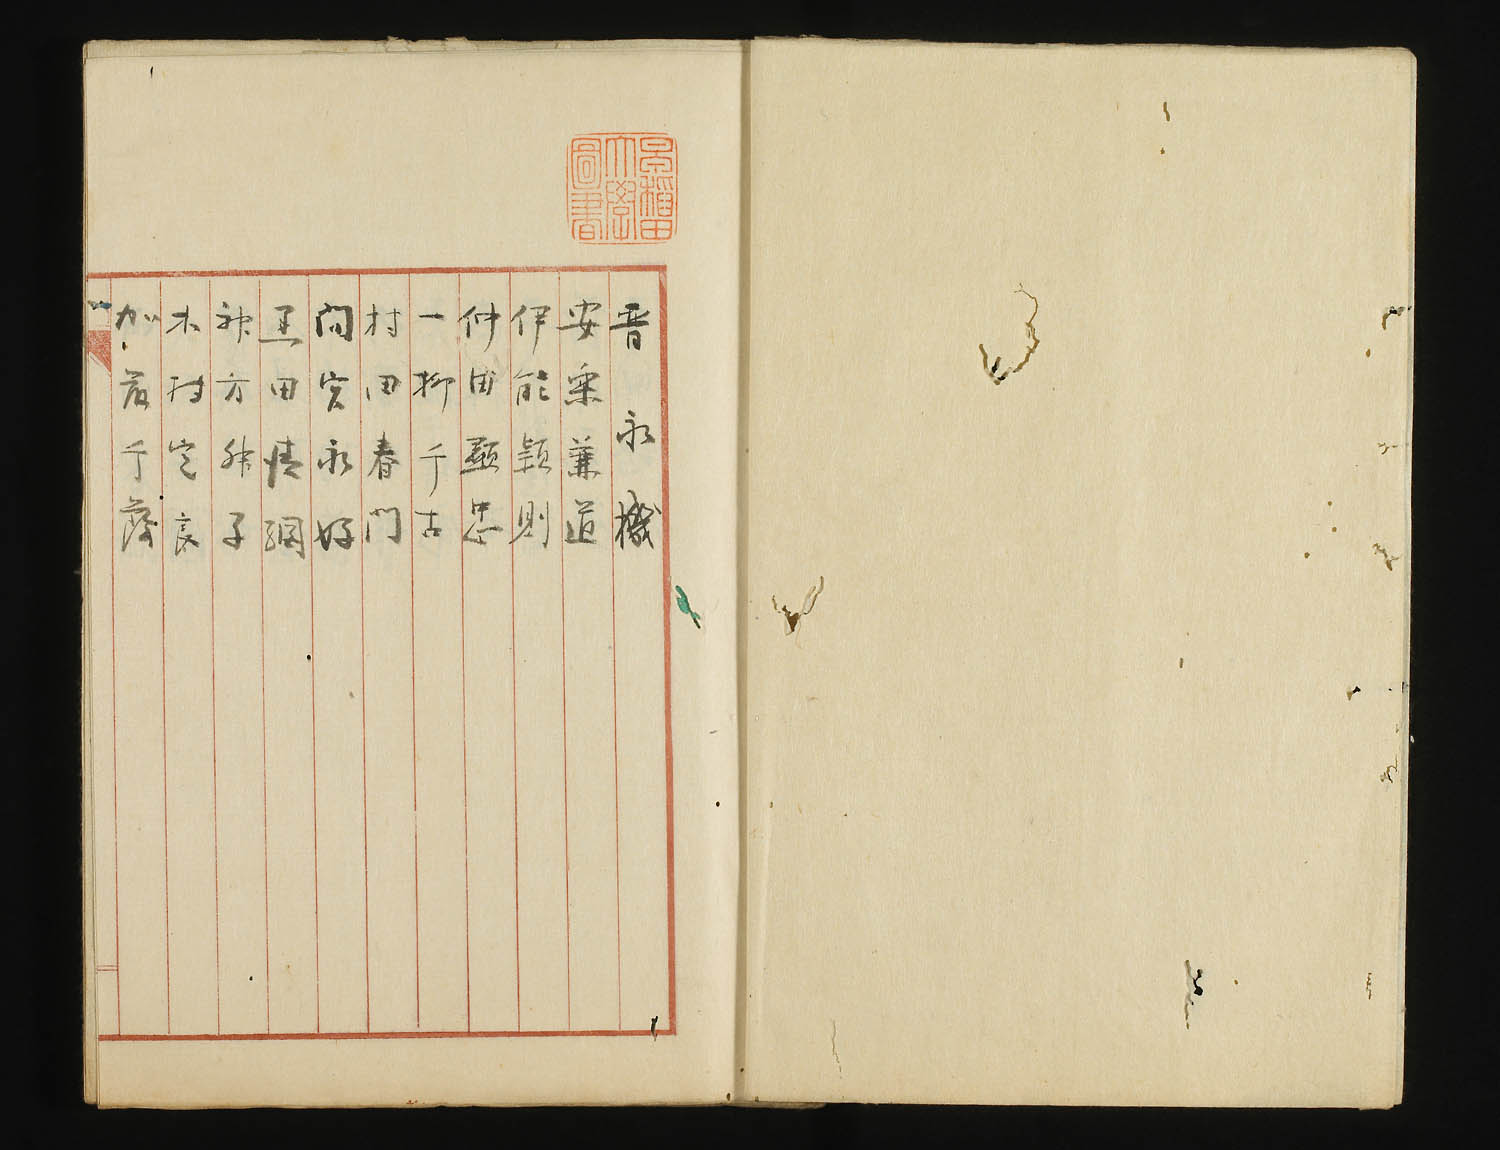 早稲田大學圖書
晋永機
安栗兼道
伊能穎則
仲田顯忠
一柳千古
村田春門
間宮永好
黒田清綱
神方升子
木村定良
加茂千蔭